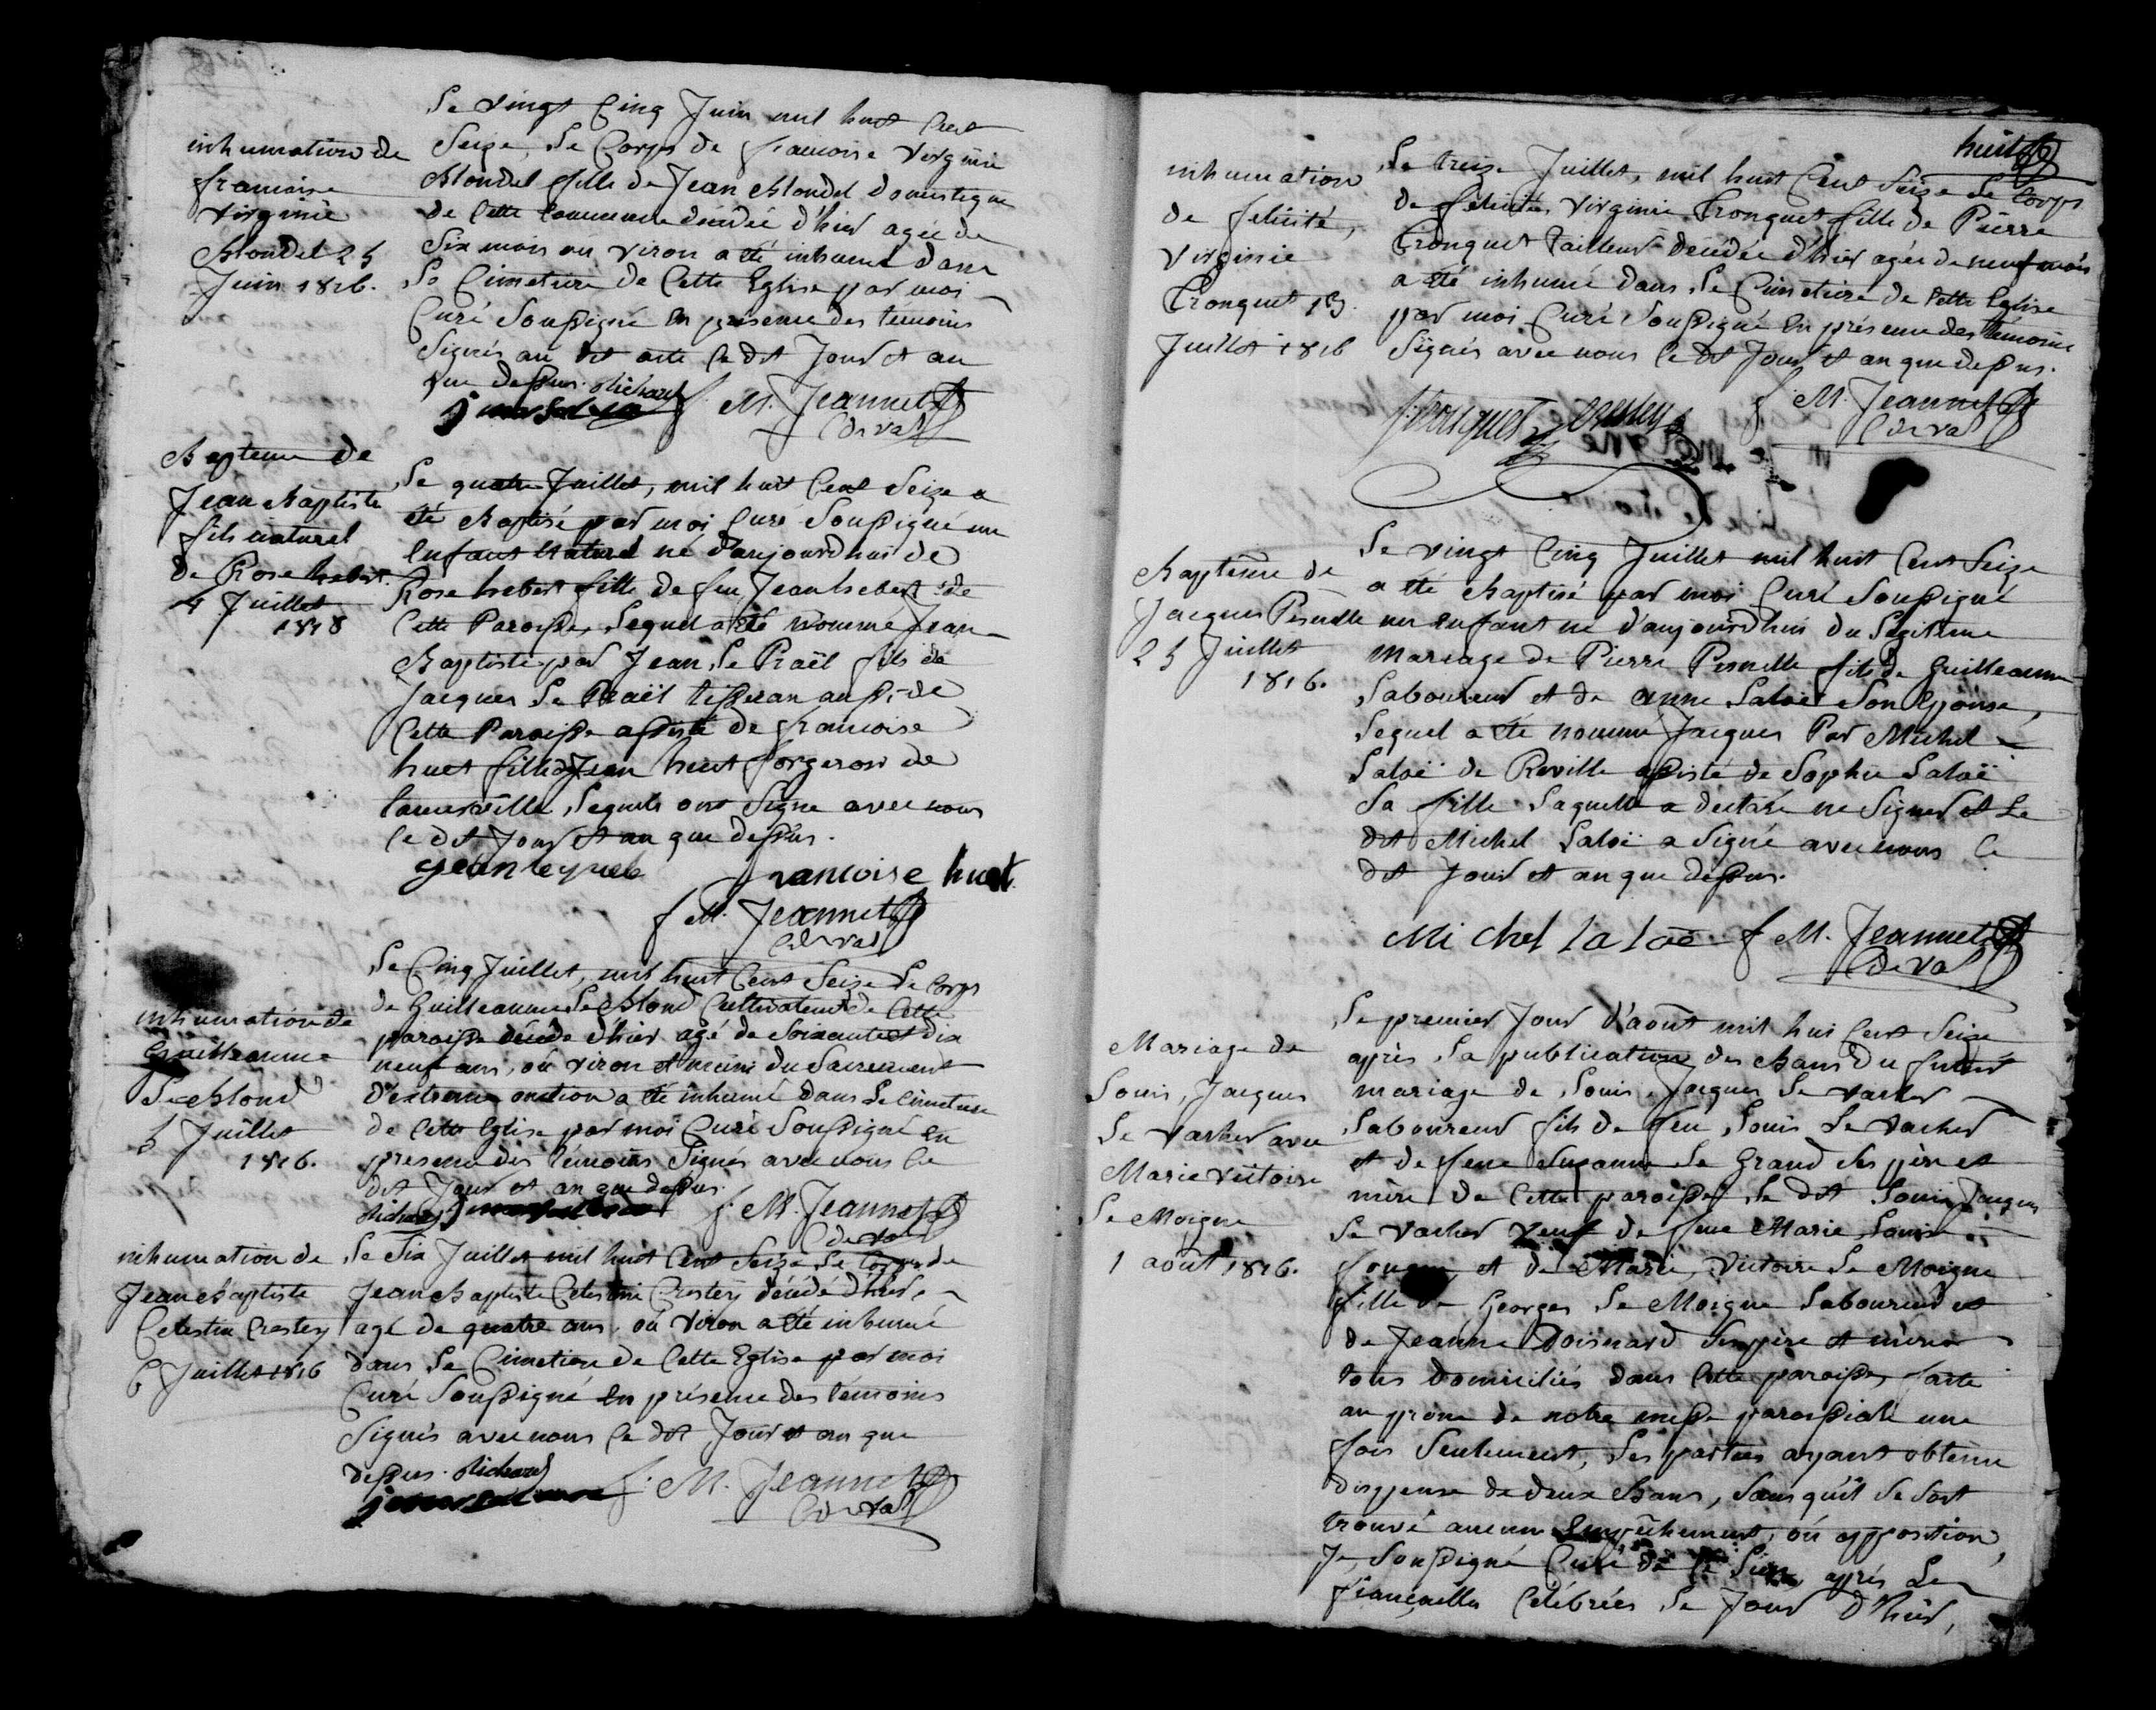 inhumation de
francoise
virginie
Blondel 25
Juin 1816.
Le vingt Cinq Juin mil huit Cent
Seize, Le Corps de francoise Virginie
Blondel fille de Jean Blondel domestique
de Cette Commune décédée d'hier agée de
Six mois ou viron a été inhumé dans
Le Cimetiere de Cette Eglise par moi
Curé Soussigné En présence des temoins
Signés au dit acte le dit Jour et an
que dessus. Richard
f. M. Jeannet
C. de Val
Bapteme de
Jean Baptiste
fils naturel
de Rose hebert.
4 Juillet
1818
Le quatre Juillet, mil huit Cent Seize a
été Baptisé par moi Curé Soussigné un
Enfant Naturel né d'aujourdhui de
Rose hebert fille de feu Jean hebert de
Cette Paroisse, Lequel a été nommé Jean
Baptiste par Jean Le Praël fils de
Jacques Le Praël tisseran aussi de
Cette Paroisse assisté de francoise
huet fille de Jean huet forgeron de
Lequels ont Signé avec nous
le dit Jour et an que dessus.
francoise huet.
f M. Jeannet
C. de Val
inhumation de
Guilleaume
Le Blond
5 Juillet
1816.
Le Cinq Juillet, mil huit Cent Seize Le Corps
de Guilleaume Le Blond Cultivateur de Cette
paroisse décédé d'hier agé de Soixante et dix
neuf ans, ou viron et muni du Sacrement
d'extreme onction a été inhumé dans Le Cimetiere
de Cette Eglise par moi Curé Soussigné En
presence des temoins Signés avec nous le
dit Jour et an que dessus.
Richard
f. M. Jeannet
C de Val
inhumation de
Jean Baptiste
Celestin Crestey
6 Juillet 1816
Le Six Juillet mil huit Cent Seize Le Corps de
Jean Baptiste Celestin Crestey décédé d'hier,
agé de quatre ans, ou viron a été inhumé
dans Le Cimetiere de Cette Eglise par moi
Curé Soussigné En présence des témoins
Signés avec nous le dit Jour et an que
dessus. Richard
f. M. Jeannet
C de Val
huit
inhumation
de felicité,
Virginie
Tronquet 13.
Juillet 1816
Le treize Juillet, mil huit Cent Seize Le Corps
de félicité, Virginie Tronquet fille de Pierre
Tronquet Tailleur décédée d'hier agée de neuf mois
a été inhumé dans Le Cimetiere de Cette Eglise
par moi Curé Soussigné En présence des témoins
Signés avec nous le dit Jour et an que dessus.
f M. Jeannet
C de Val
Bapteme de
Jacques Pesnelle
25 Juillet
1816.
Le vingt Cinq Juillet mil huit Cent Seize
a été Baptisé par moi Curé Soussigné
un Enfant né d'aujourdhui du Legitime
Mariage de Pierre Pesnelle fils de Guilleaume
Laboureur et de anne Laloë Son Epouse,
Lequel a été nommé Jacques Par Michel
Laloë de Reville assisté de Sophie Laloë
Sa fille Laquelle a declaré ne Signer et Le
dit Michel Laloë a Signé avec nous le
dit Jour et an que dessus.
Michel la loë f M. Jeannet
C de Val
Mariage de
Louis, Jacques
Le Vacher avec
Marie Victoire
Le Moigne
1 août 1816.
Le premier Jour d'août mil hui Cent Seize
après La publication des Bans du futur
mariage de Louis, Jacques Le Vacher
Laboureur fils de feu, Louis Le Vacher
et de feue Suzanne Le Grand Ses père et
mère de Cette paroisse, Le dit Louis, Jacques
Le Vacher Veuf de feue Marie Louise
et de Marie, Victoire Le Moigne
fille de Georges Le Moigne Laboureur et
de Jeanne Doisnard Ses père et mère
tous domiciliés dans Cette paroisse, faite
au prone de notre messe paroissiale une
fois Seulement, Les parties ayant obtenu
dispense de deux Bans, Sans qu'il Se Soit
trouvé aucun Empêchement, ou opposition,
Je, Soussigné Curé de Ce Lieu, après Les
fiancailles Célébrées Le Jour d'hier,